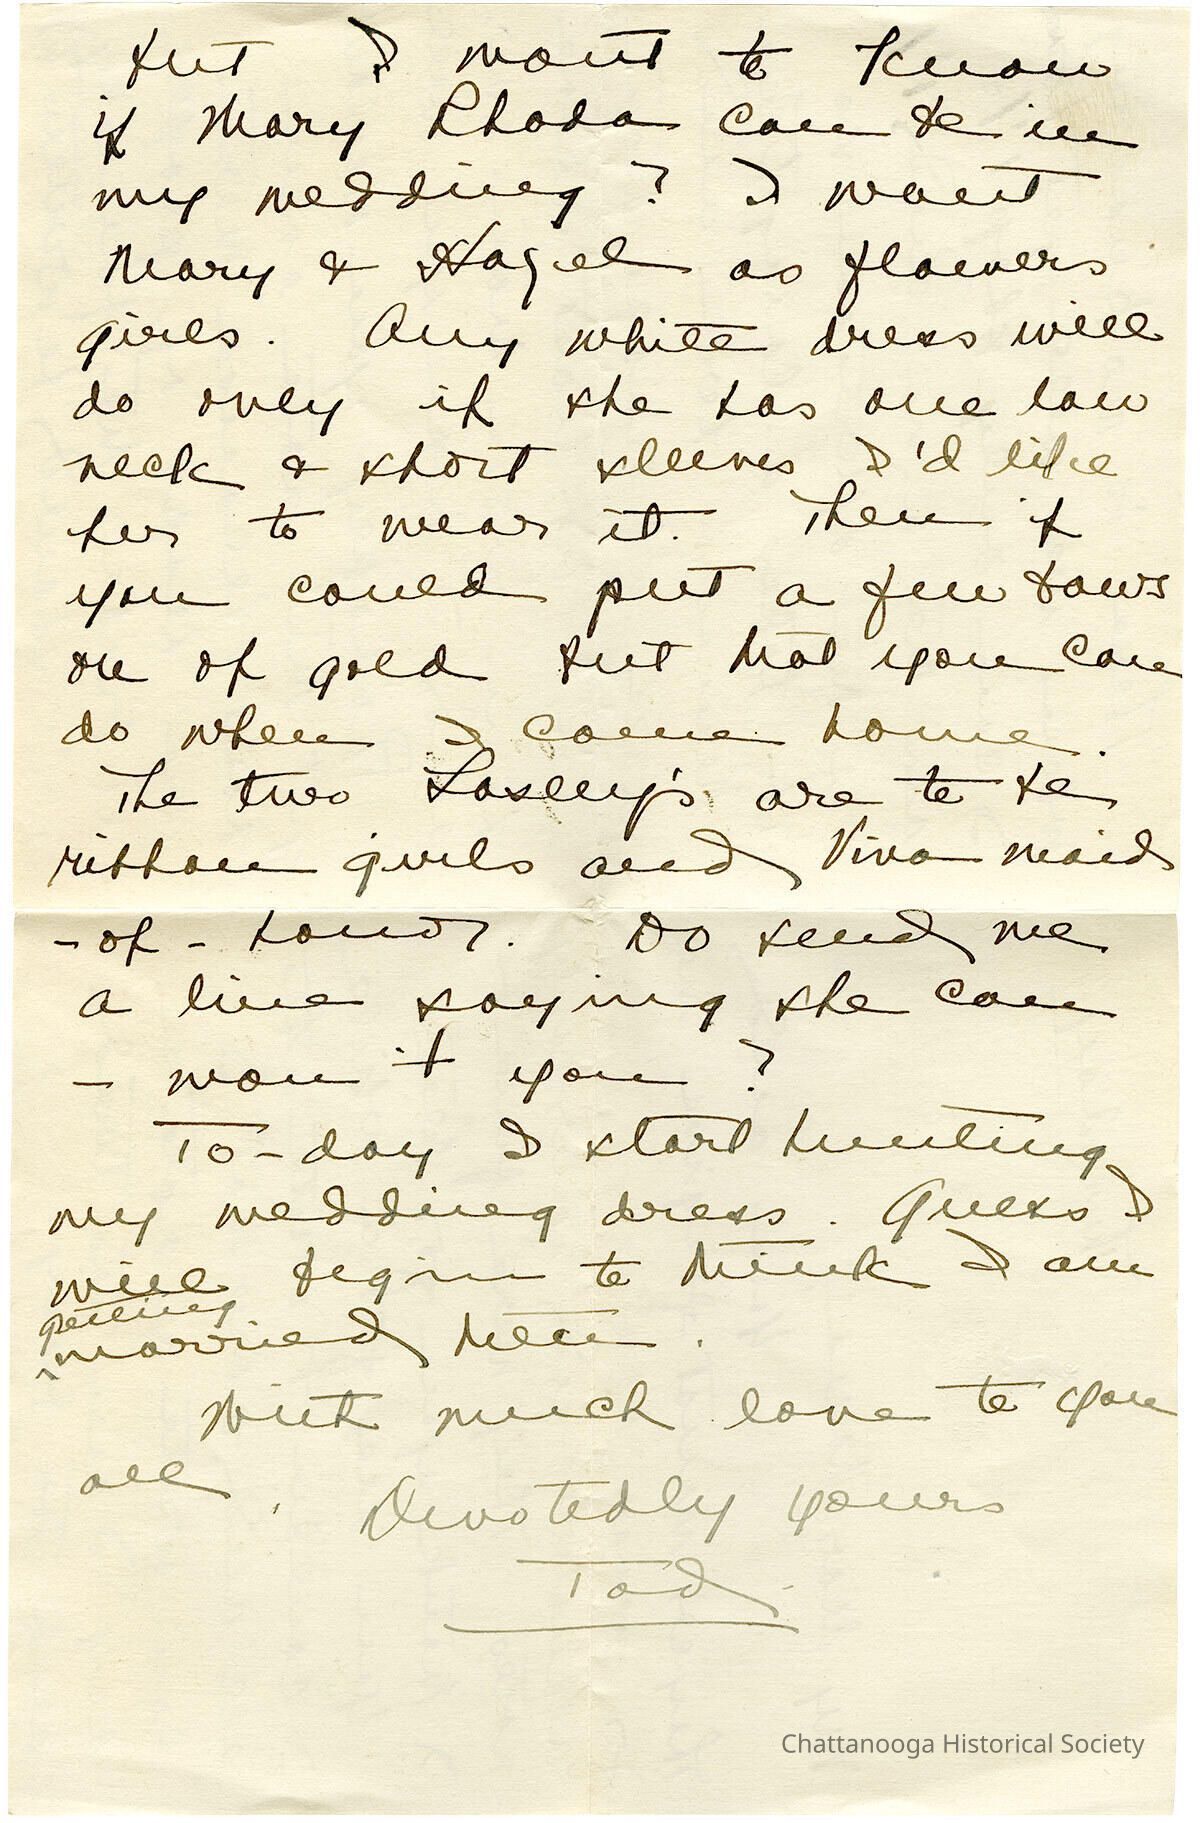 but I want to know
if Mary Rhoda can be in
my wedding? I want
Mary & Hazel as flowers
girls. Any white dress will
do only if she has one low
neck & short sleeves I'd like
her to wear it. Then if
you could put a few bows
on of gold but that you can
do when I come home.
The two Loseley's are to be
ribbon girls and Viva maid
- of - honor. Do send me
a line saying she can
- won't you?
To-day I start hunting
my wedding dress. Guess I
will begin to think I am
getting
married then.
With much love to you
all.
Devotedly yours
Tad.
Chattanooga Historical Society